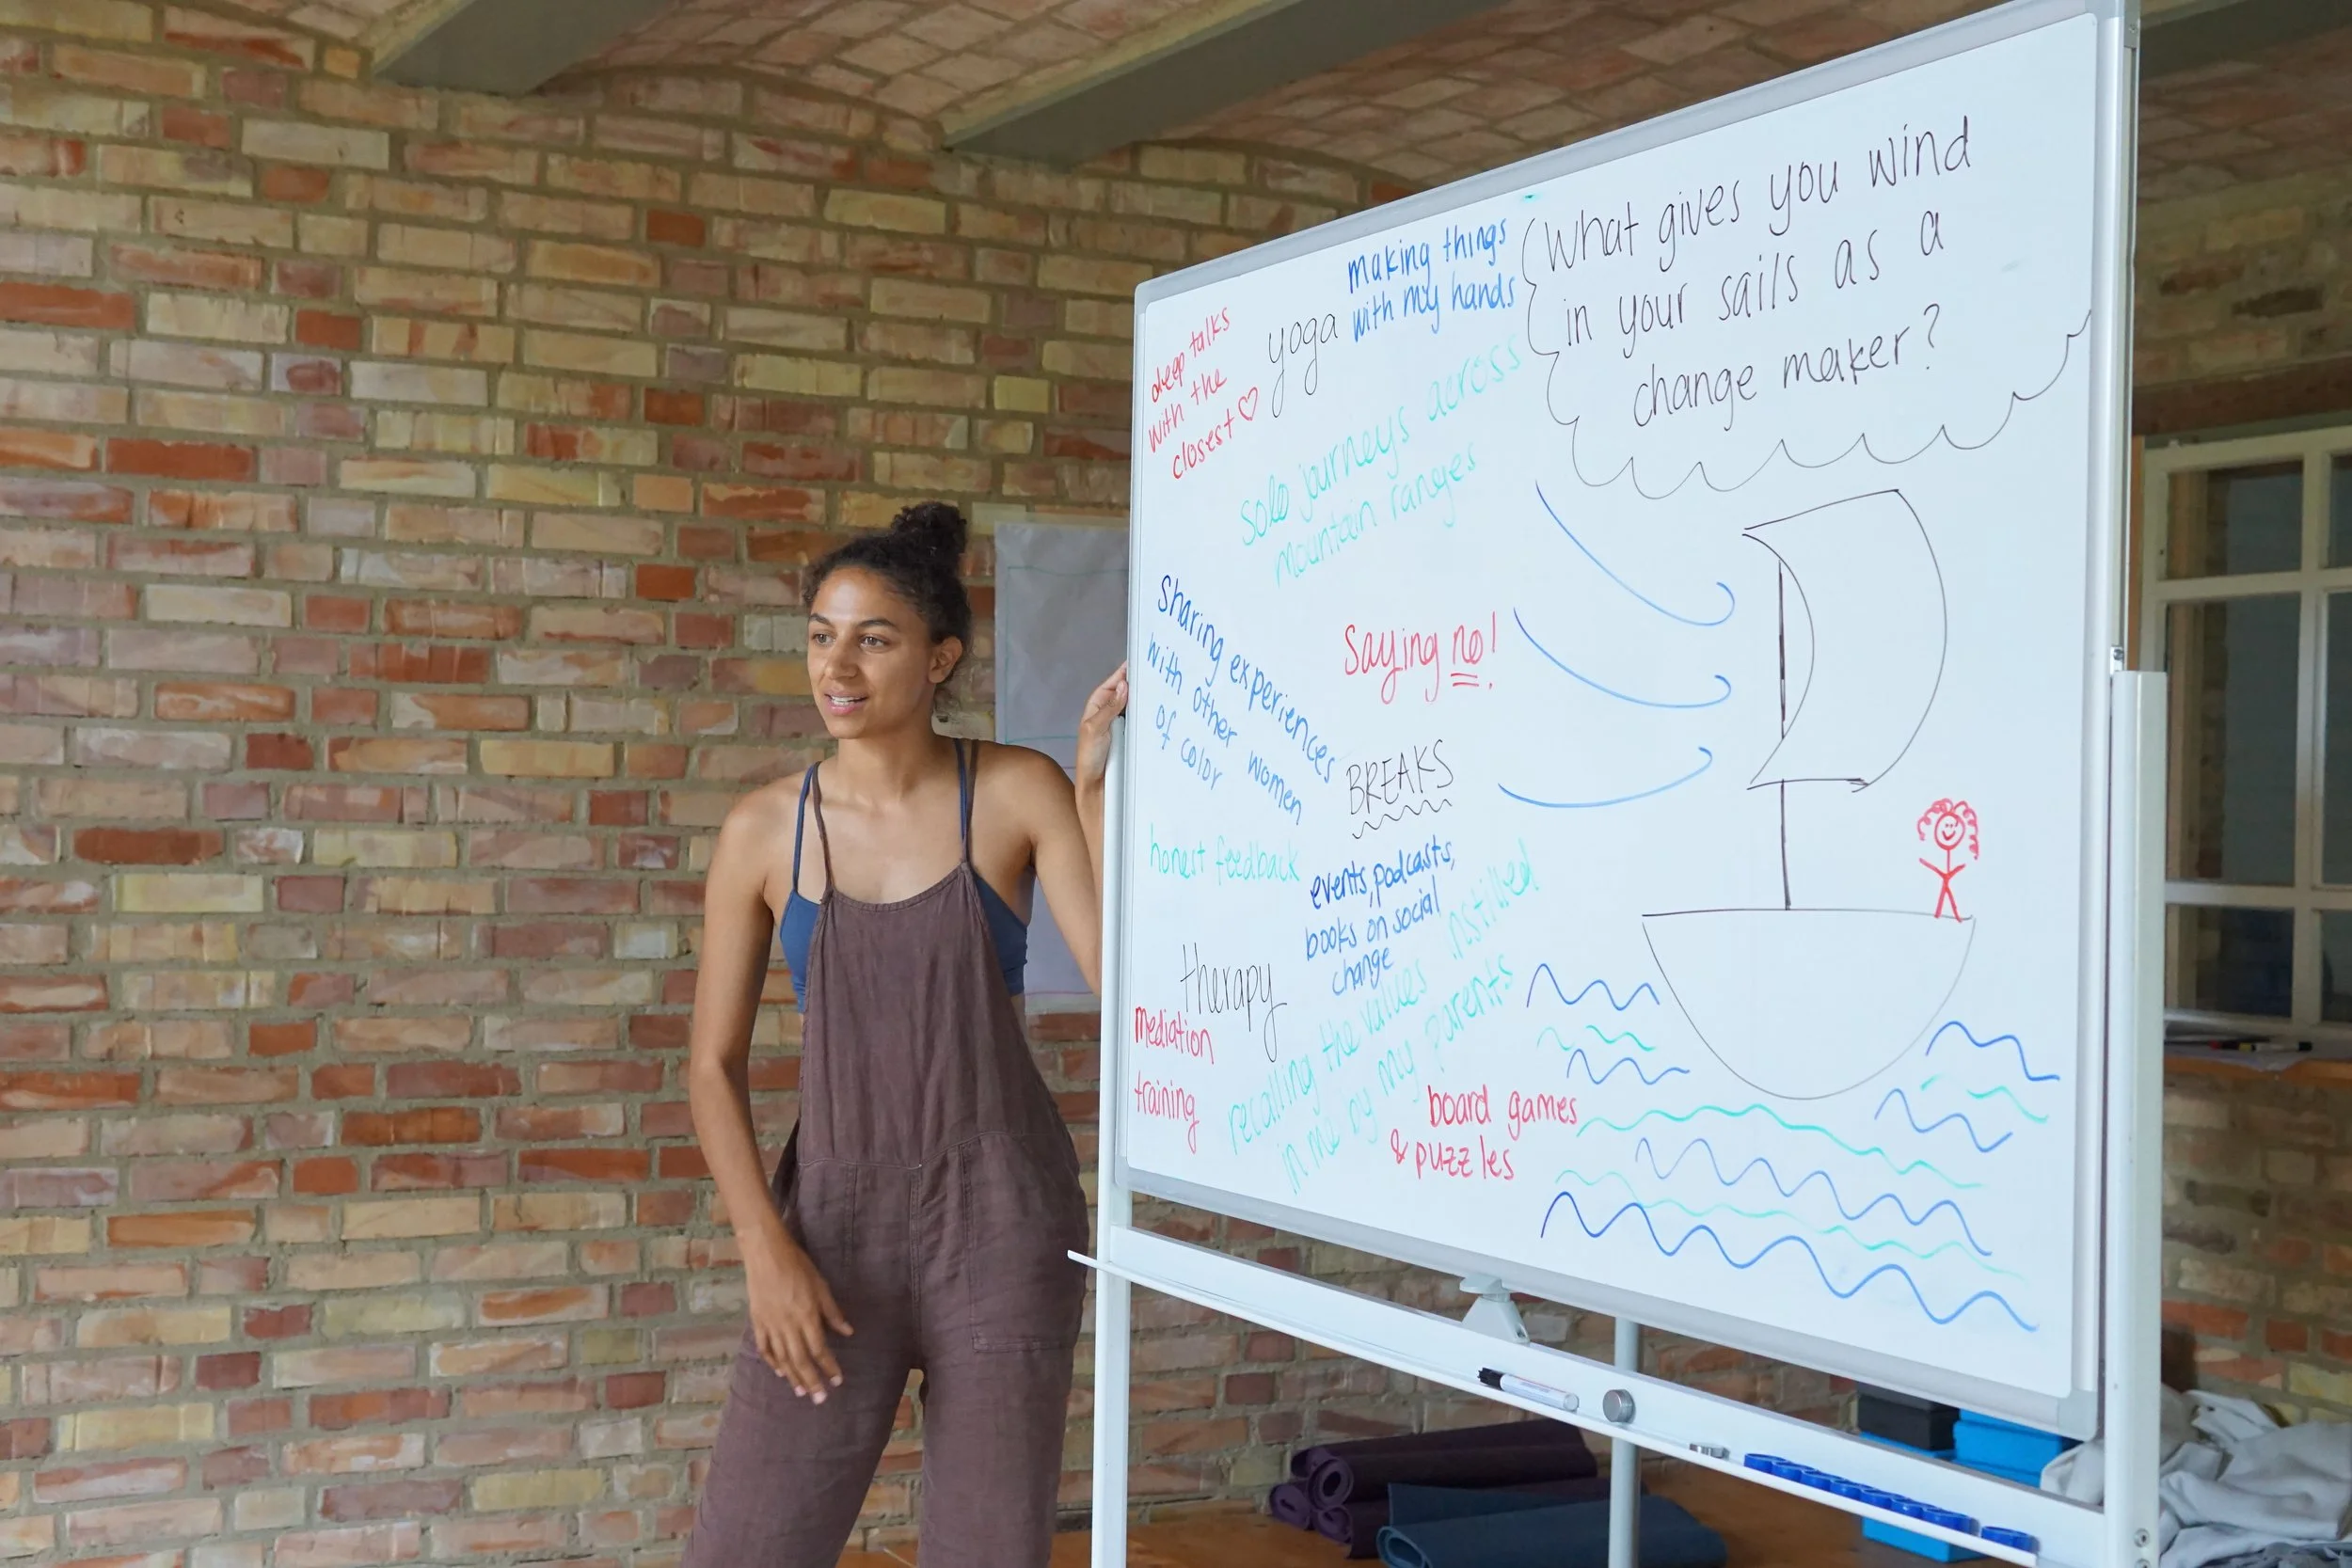 What gives you wind
in your sails as a
change maker?
deep talks
with the
closest ♡
yoga
making things
with my hands
solo journeys across
mountain ranges
Sharing experiences
with other women
of color
Saying no!
BREAKS
honest feedback
events, podcasts,
books on social
change
therapy
mediation
training
recalling the values instilled
in me by my parents
board games
& puzzles